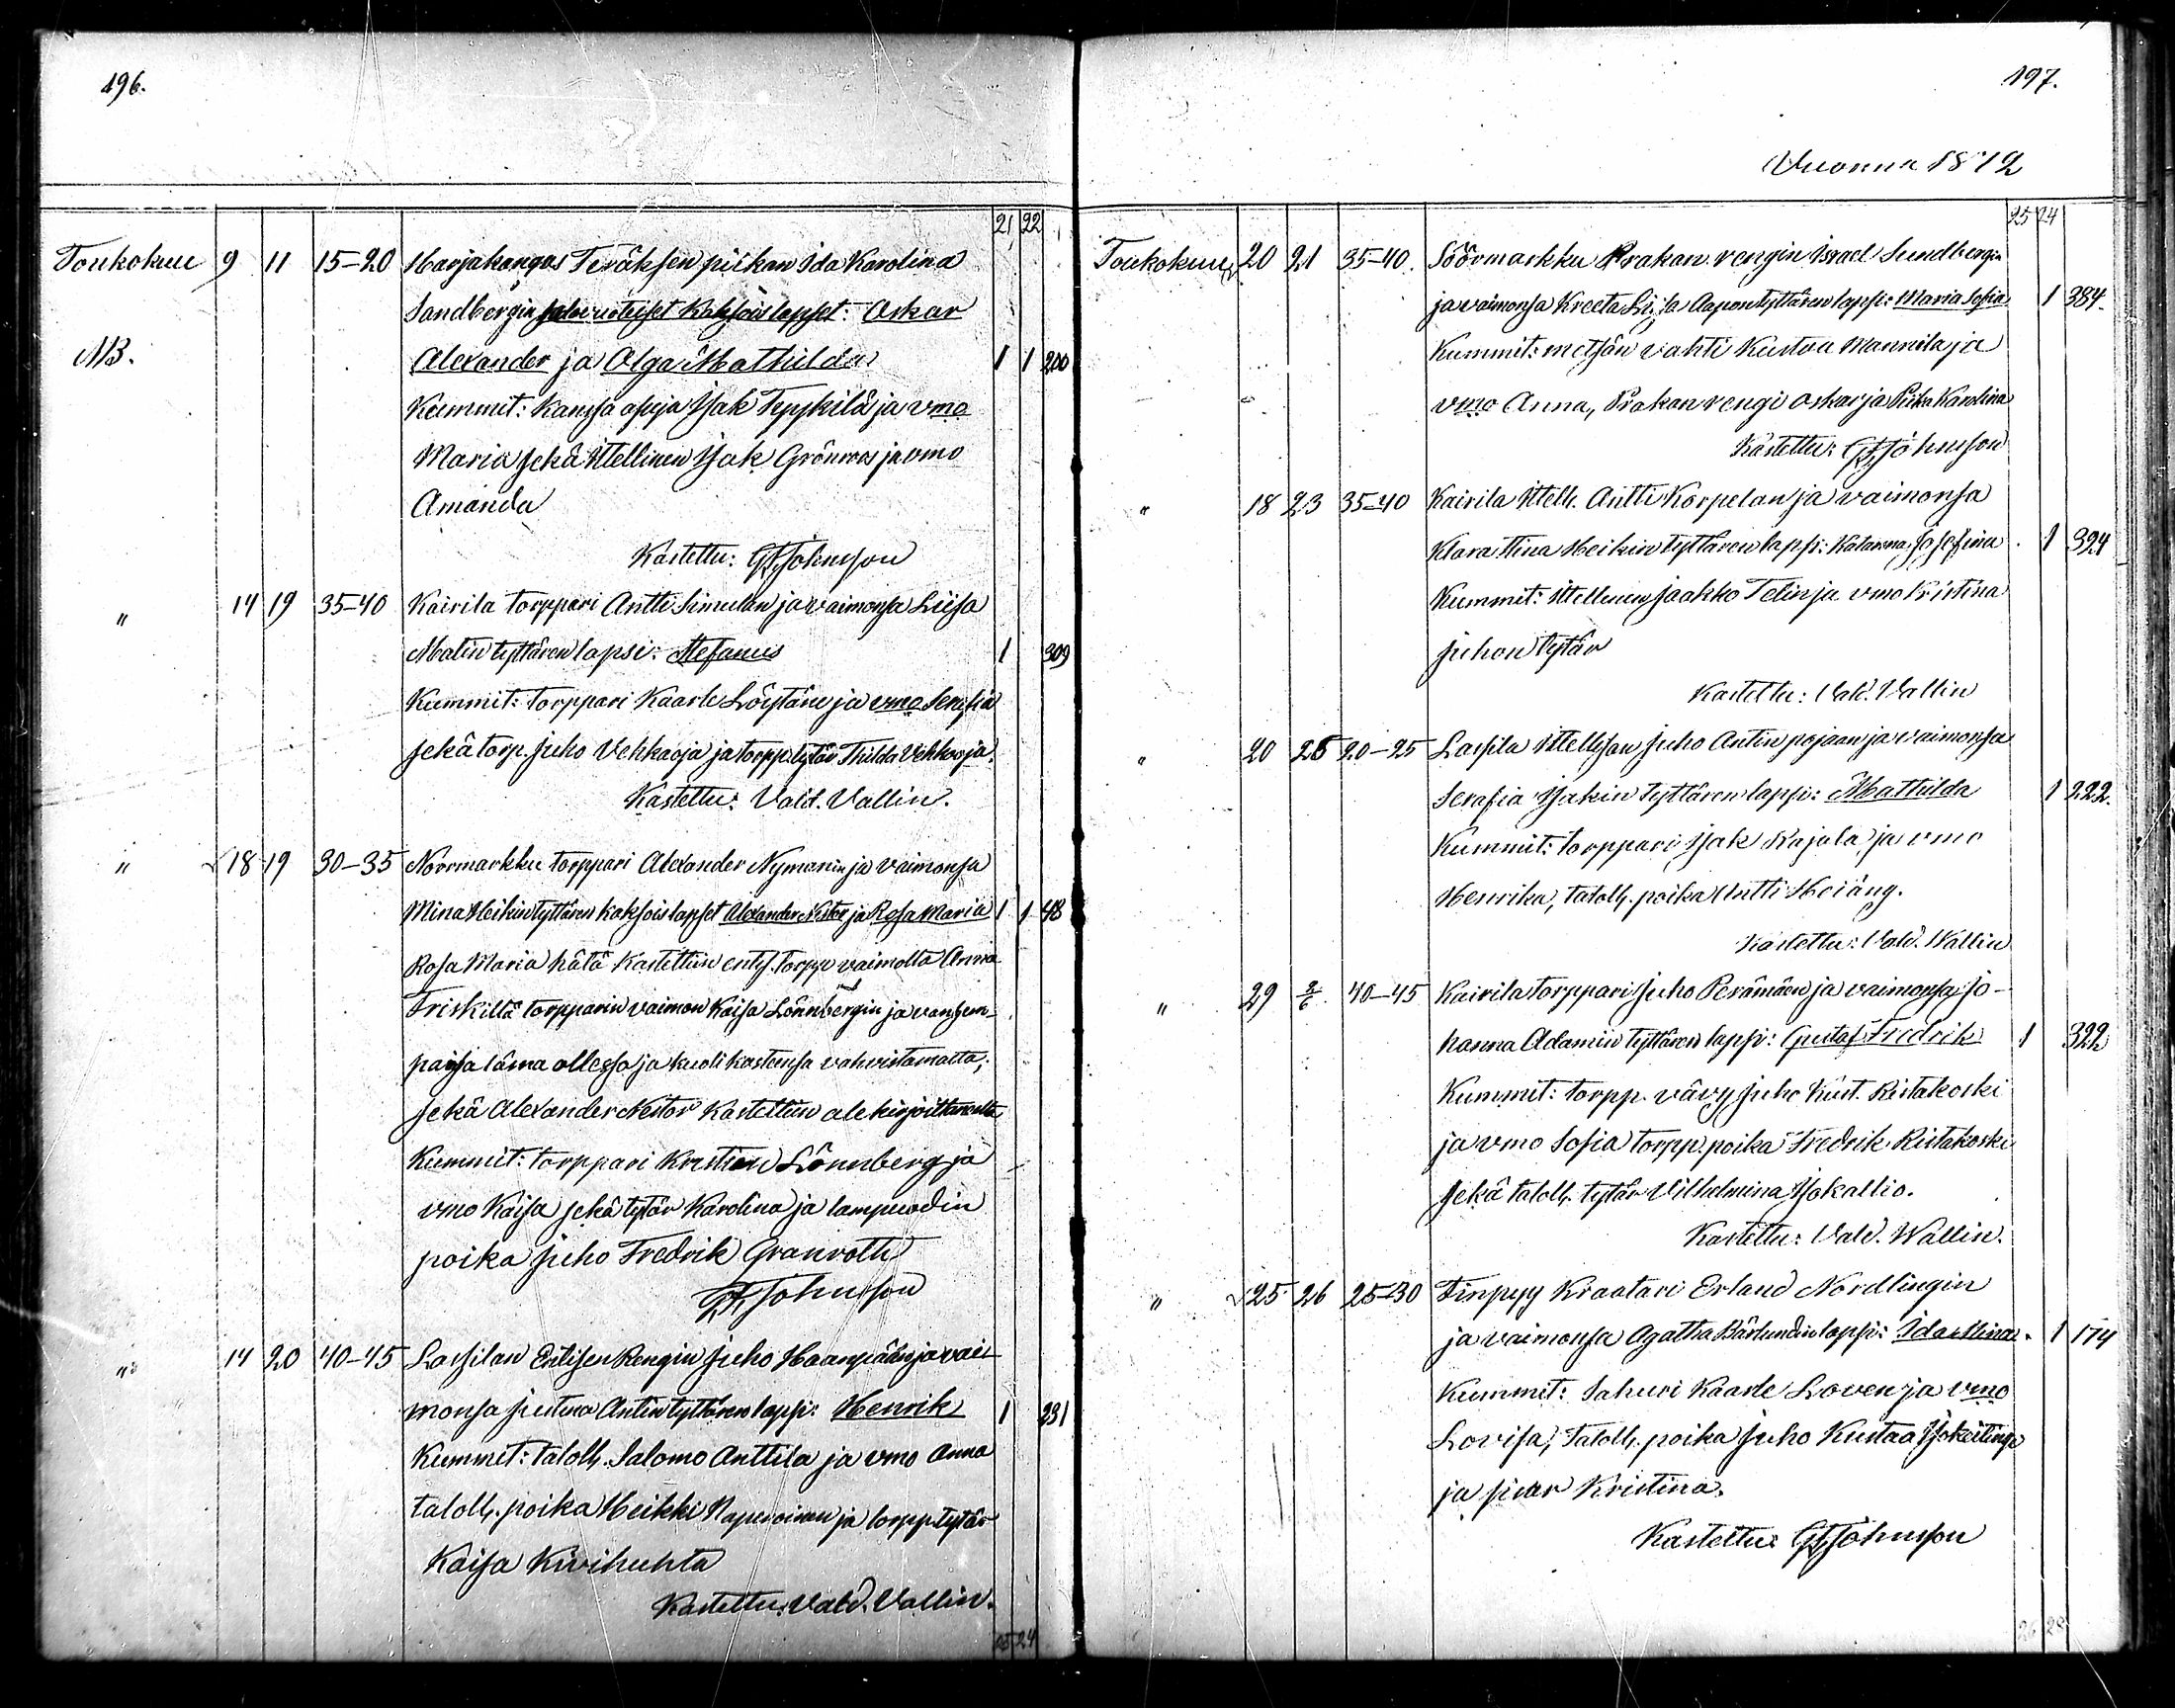 196.
21 22
Toukokuu 9 11 15–20 Harjakangas Teräksen piikan Ida Karolina
Sandbergin kaksois lapset: Oskar
NB. Alexander ja Olga Mathilda 1 1 200
Kummit: Isak Teppilä ja vmo
Maria sekä Itellinen Isak Grönroos ja vmo
Amanda
Kastettu: G.F. Johnsson
" 14 19 35–40 Kairila torppari Antti Simulan ja vaimonsa Liisa
Matin tyttären lapsi: Stefanus 1 309
Kummit: torppari Kaarle Löytäne ja vmo Serafia
sekä torp. Juho Vehkaoja ja torpp. tytär Thilda Vehkaoja.
Kastettu: Vald. Vallin.
" 18 19 30–35 Noormarkku torppari Alexander Nymanin ja vaimonsa
Mina Heikin tyttären kaksois lapset Alexander Nestor ja Rosa Maria 1 1 48
Rosa Maria hätä kastettiin entis. torpp. vaimolta Anna
Friskiltä torpparin vaimon Kaisa Lönnbergin ja vanhem-
paisa läsnä ollessa ja kuoli kasteensa vahvistamatta;
sekä Alexander Nestor kastettiin alekirjoittaneelta
Kummit: torppari Kristian Lönnberg ja
vmo Kaisa sekä tytär Karolina ja lampuodin
poika Juho Fredrik Granroth
G.F. Johnsson
" 14 20 40–45 Lassilan Entisen Rengin Juho Haanpään ja vai
monsa Justina Antin tyttären lapsi: Henrik 1 231
Kummit: taloll. Salomo Anttila ja vmo Anna
taloll. poika Heikki ja torpp. tytär
Kaisa Kivihuhta
Kastettu: Vald. Vallin.
25 24
197.
Vuonna 1872
25 24
Toukokuu 20 21 35–40. Söörmarkku Prakan rengin Israel Sundbergin
ja vaimonsa Kreeta Liisa Aapon tyttären lapsi: Maria Sofia 1 384.
Kummit: metsän vahti Kustaa Mannila ja
vmo Anna, Prakan rengi Oskar ja Piika Karolina
Kastettu: G.F. Johnsson
" 18 23 35–40 Kairila Itell. Antti Korpelan ja vaimonsa
Klara Stina Heikin tyttären lapsi: Katarina Josefina 1 324
Kummit: Itellinen Jaakko Telin ja vmo Kristina
Juhon tytär
Kastettu: Vald. Vallin
" 20 25 20–25 Lassila Itellisen Juho Antin pojan ja vaimonsa
Serafia Isakin tyttären lapsi: Mathilda 1 222.
Kummit: torppari Isak Rajala ja vmo
Henrika, taloll. poika Antti
Kastettu: Vald. Wallin
" 29 2/6. 40–45 Kairila torppari Juho Perämäen ja vaimonsa Jo-
hanna Adamin tyttären lapsi: Gustaf Fredrik 1 322
Kummit: torpp. vävy Juho Kust. Ristakoski
ja vmo Sofia torpp. poika Fredrik Ristakoski
sekä taloll. tytär Vilhelmina Isokallio.
Kastettu: Vald. Wallin.
" 25 26 25–30 Finpyy Kraatari Erland Nordlingin
ja vaimonsa Agatha Bärlundin lapsi: Ida Mina 1 174
Kummit: Sahuri Kaarle Loven ja vmo
Lovisa, Taloll. poika Juho Kustaa
ja sisar Kristina.
Kastettu: G.F. Johnsson
26 28